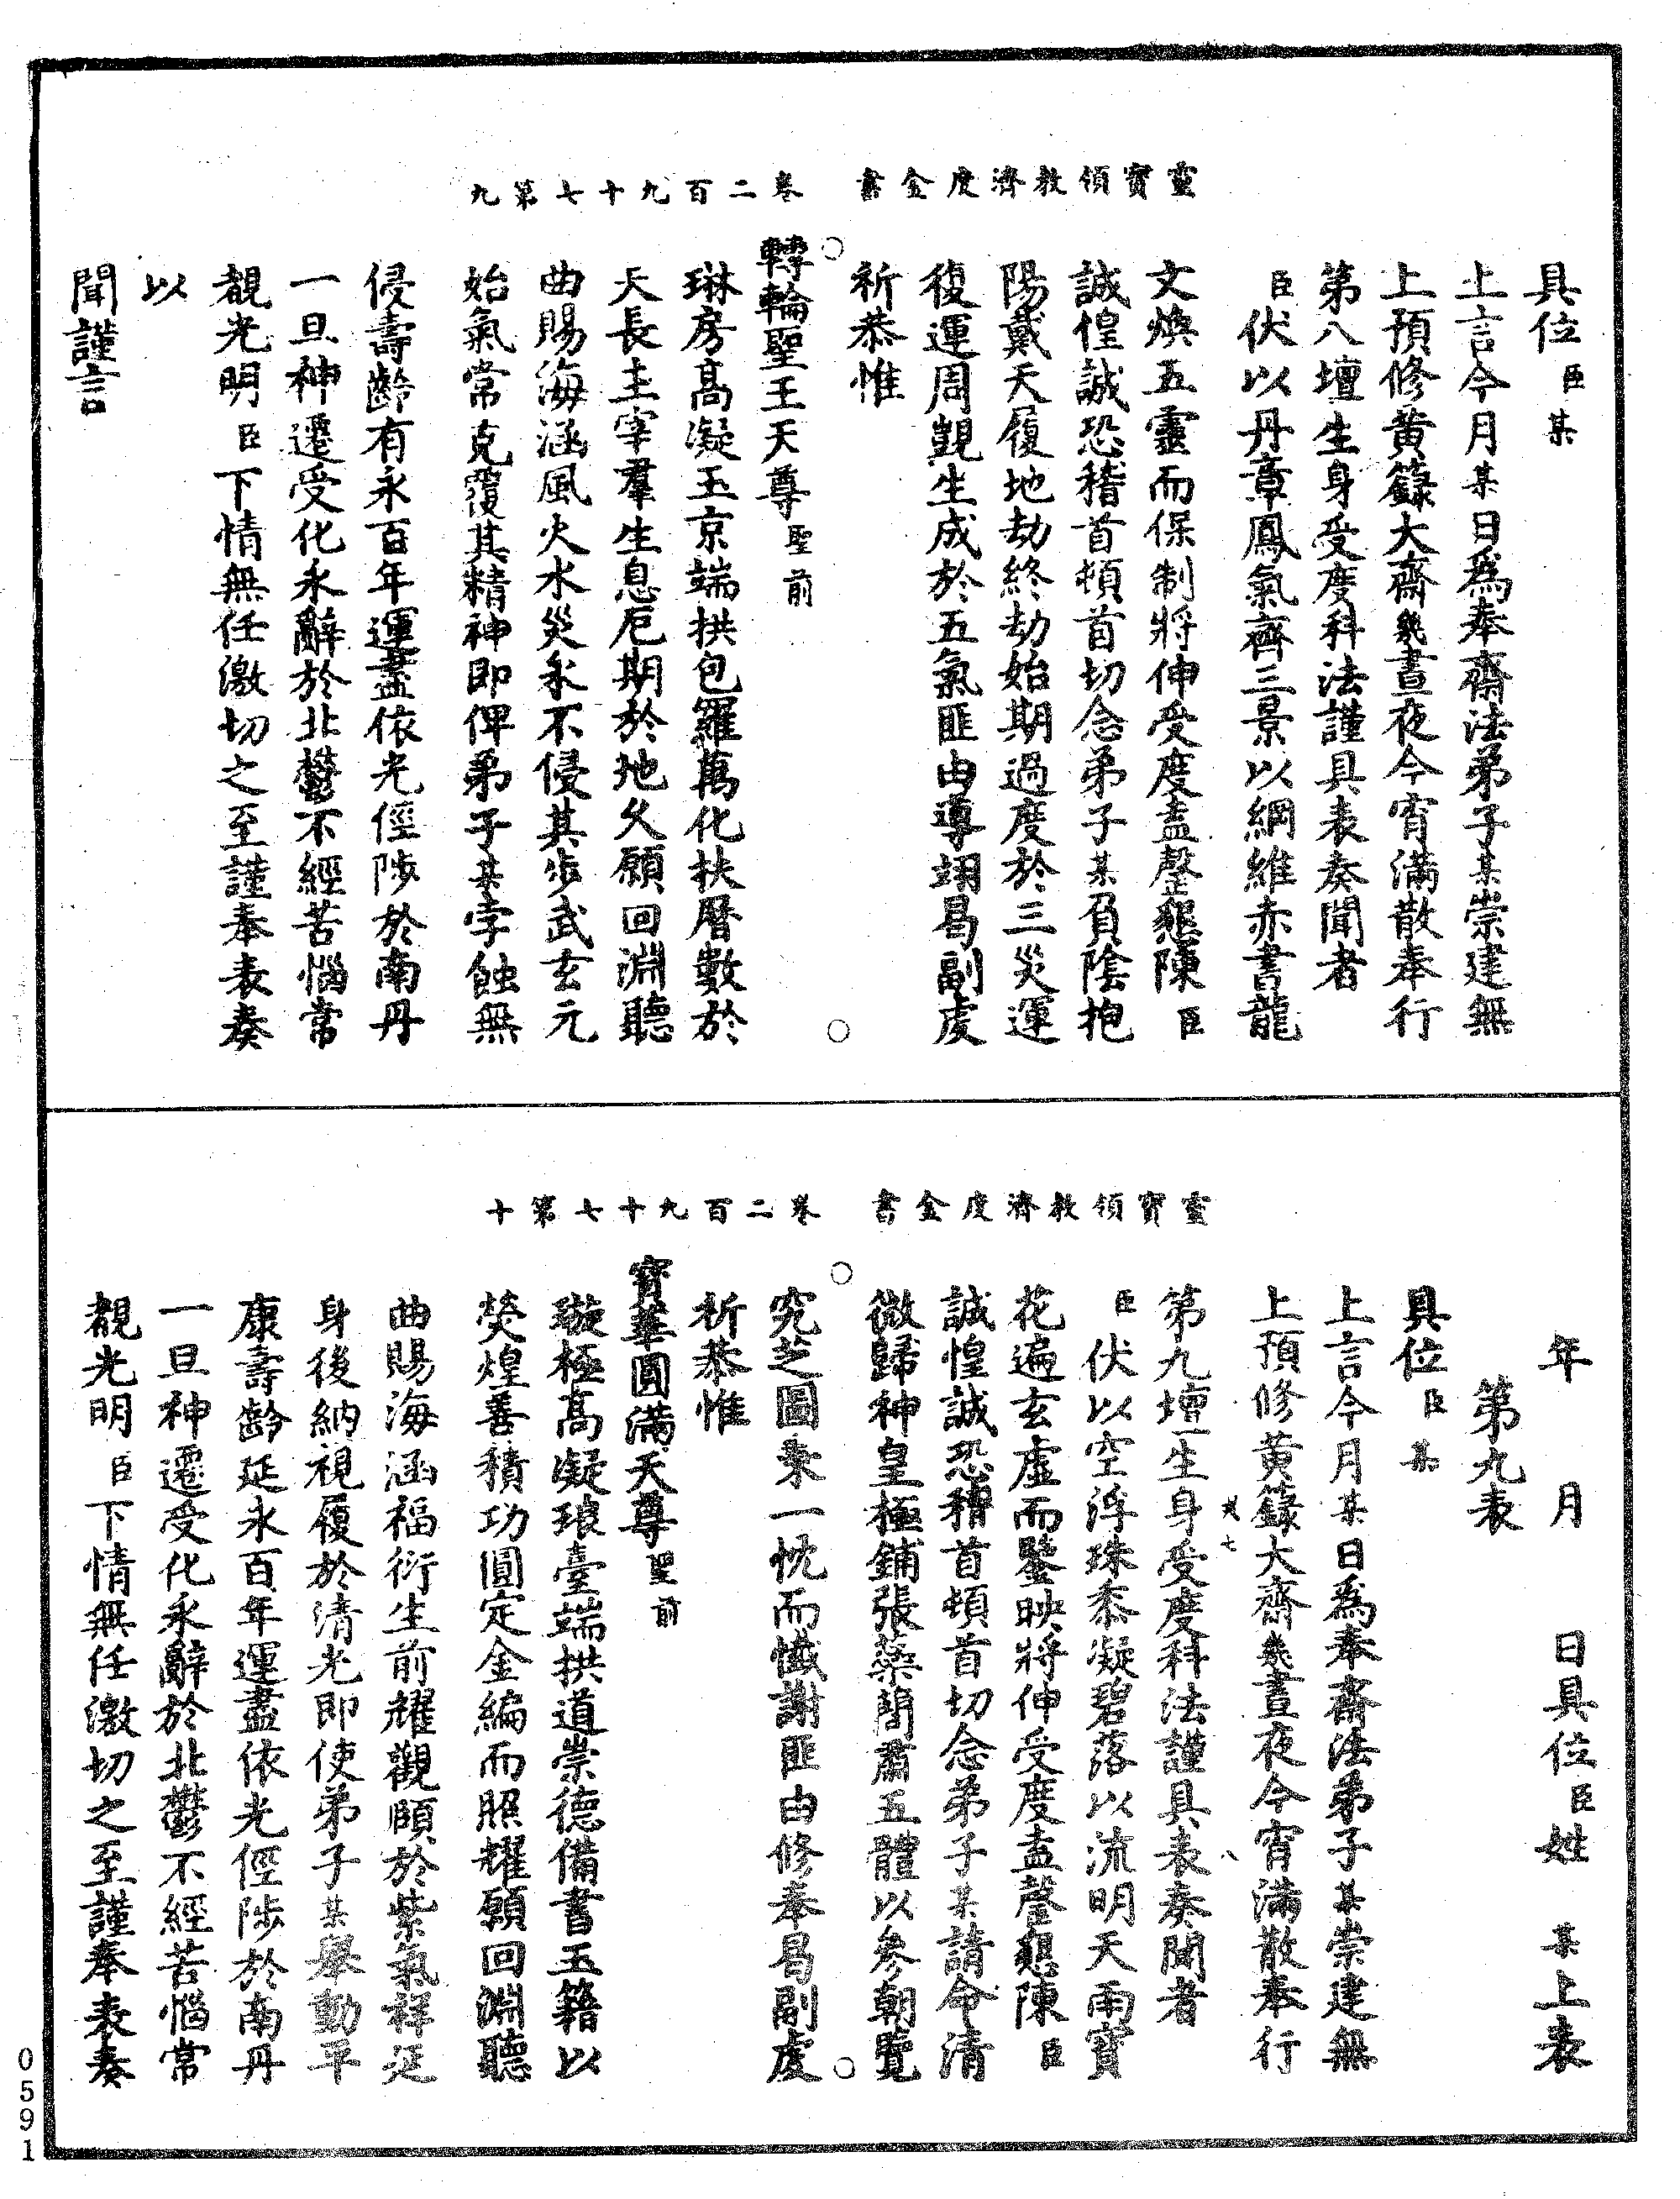 靈寶領教濟度金書 卷二百九十七第九
具位臣某
上言今月某日爲奉齋法弟子某崇建無
上預修黃籙大齋幾晝夜今宵滿散奉行
第八壇生身受度科法謹具表奏聞者
臣伏以丹章鳳氣齊三景以綱維赤書龍
文煥五靈而保制將伸受度盍罄懇陳臣
誠惶誠恐稽首頓首切念弟子某負陰抱
陽戴天履地劫終劫始期過度於三災運
復運周覬生成於五氣匪由導翊曷副虔
祈恭惟
轉輪聖王天尊聖前
琳房高凝玉京端拱包羅萬化扶曆數於
天長主宰羣生息厄期於地久願回淵聽
曲賜海涵風火水災永不侵其步武玄元
始氣常克覆其精神即俾弟子某孛蝕無
侵壽齡有永百年運盡依光徑陟於南丹
一旦神遷受化永辭於北鬱不經苦惱常
覩光明臣下情無任激切之至謹奉表奏
以
聞謹言
靈寶領教濟度金書 卷二百九十七第十
年 月 日具位臣姓 某上表
第九表
具位臣某
上言今月某日爲奉齋法弟子某崇建無
上預修黃籙大齋幾晝夜今宵滿散奉行
第九壇生身受度科法謹具表奏聞者
臣伏以空浮珠黍凝碧落以流明天雨寶
花遍玄虛而鑒映將伸受度盍罄懇陳臣
誠惶誠恐稽首頓首切念弟子某請命清
微歸神皇極鋪張蘂簡肅五體以參朝覽
究芝圖束一忱而懺謝匪由修奉曷副虔
祈恭惟
寶華圓滿天尊聖前
璇極高凝琅臺端拱道崇德備書玉籍以
熒煌善積功圓定金編而照耀願回淵聽
曲賜海涵福衍生前耀觀頤於紫氣祥延
身後納視履於清光即使弟子某舉動平
康壽齡延永百年運盡依光徑陟於南丹
一旦神遷受化永辭於北鬱不經苦惱常
覩光明臣下情無任激切之至謹奉表奏
0591